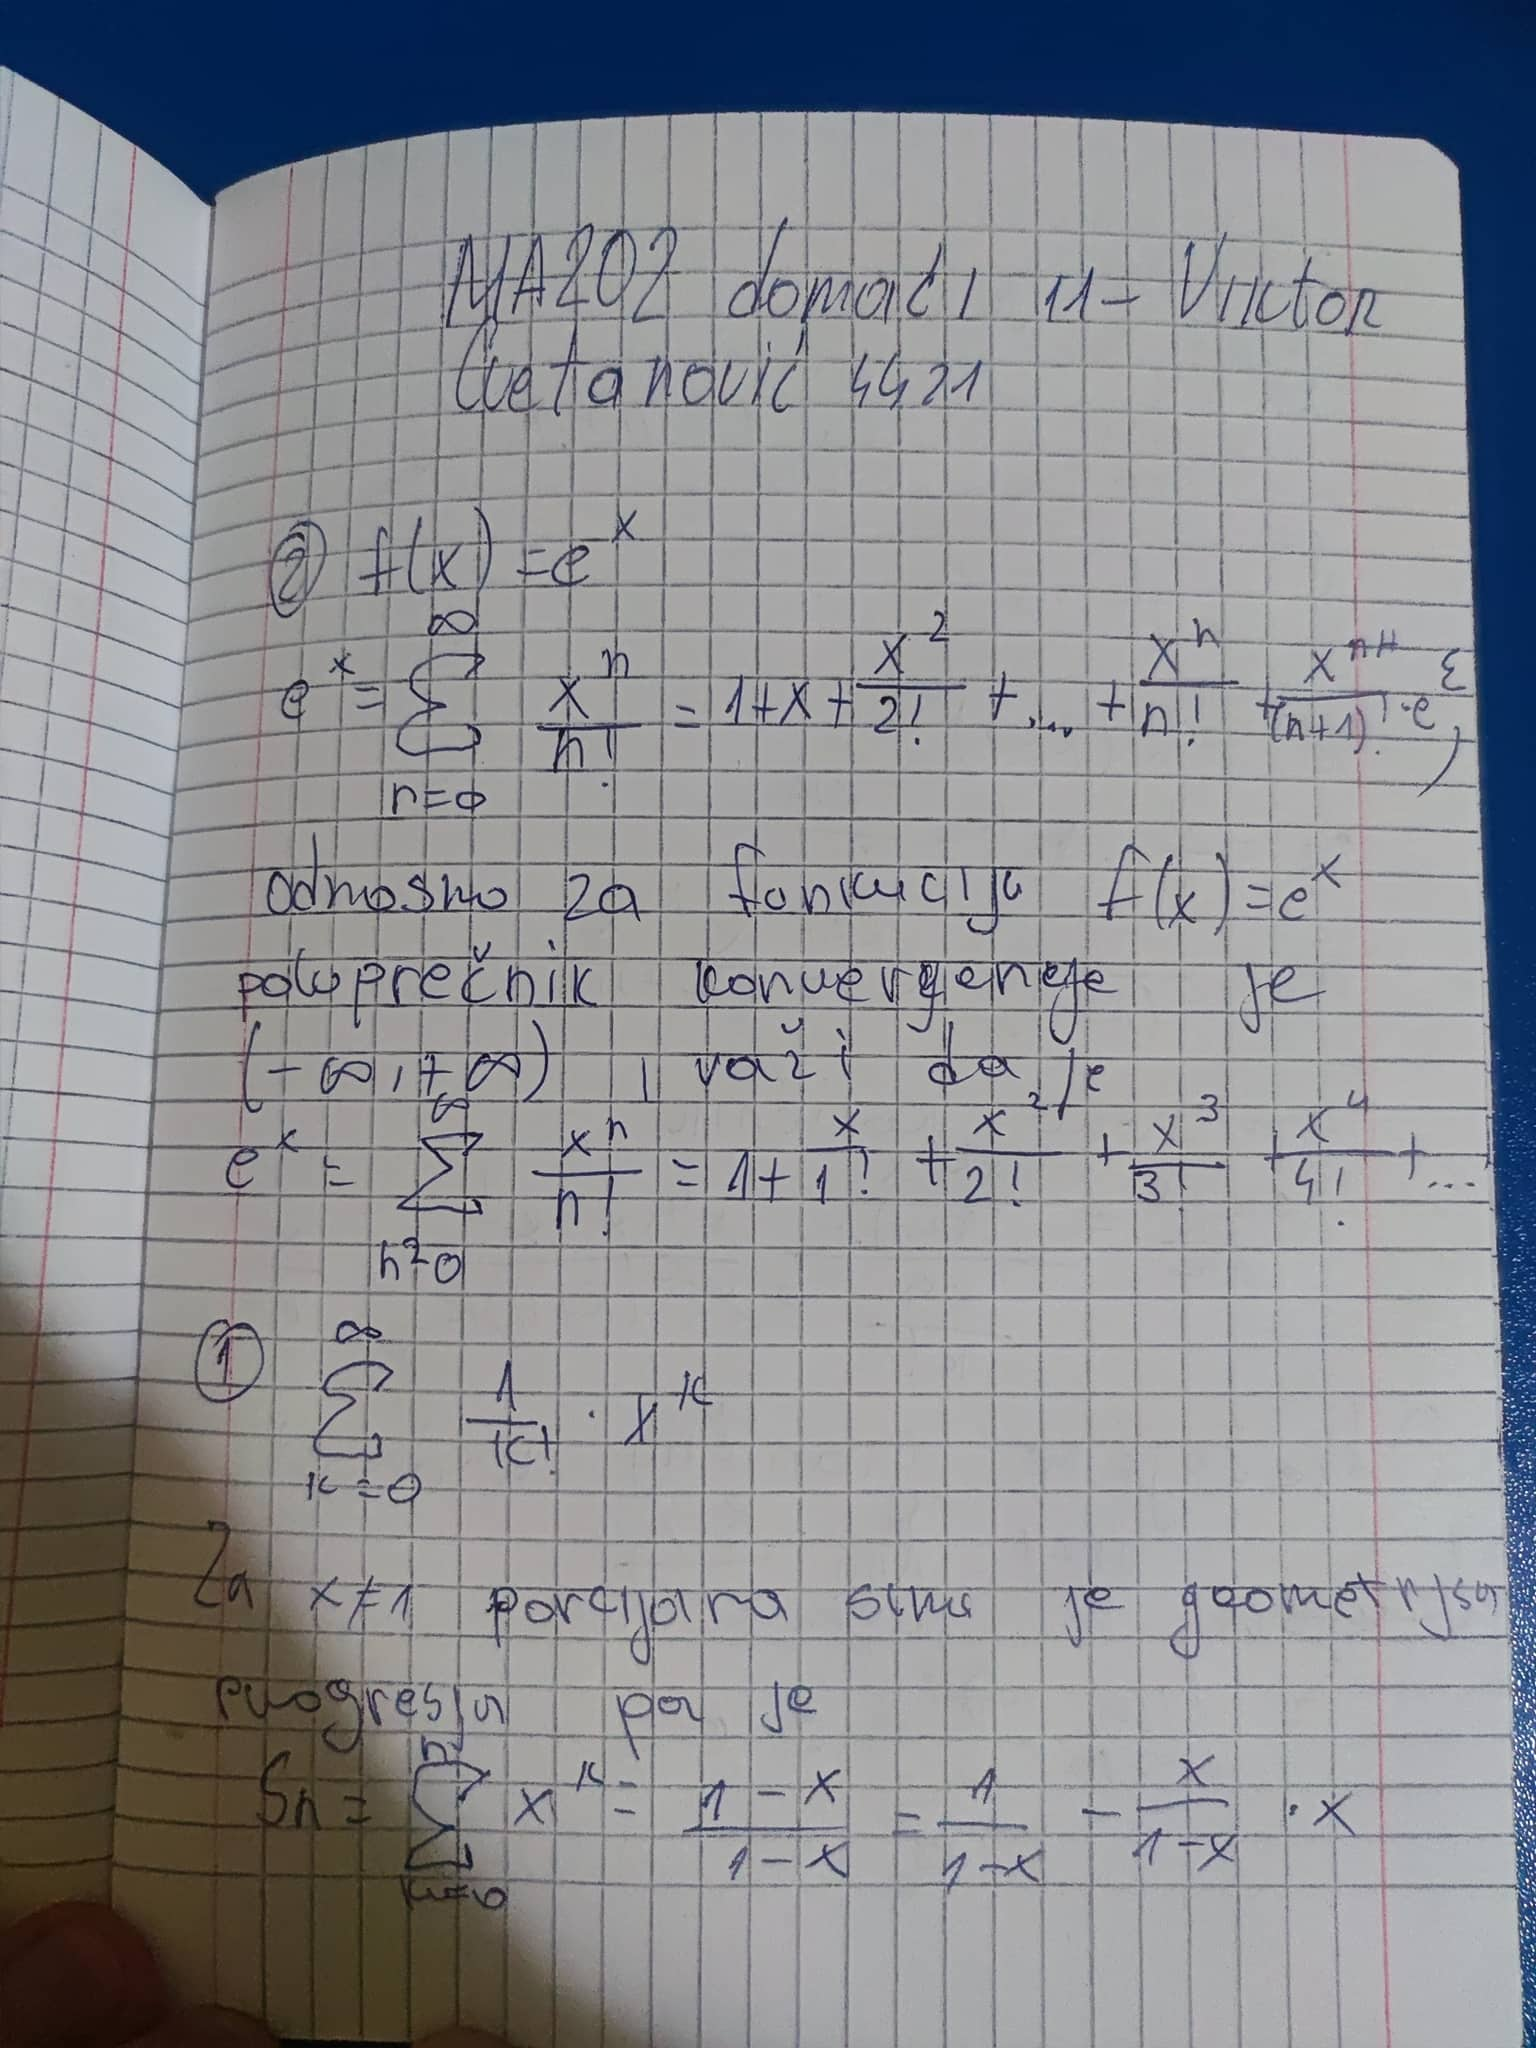 MA202 domaći 11 - Viktor
Cvetanović 4421
② f(x) = e^x
e^x = ∑_{n=0}^{∞} x^n/n! = 1+x+ x^2/2! + ... + x^n/n! + x^{n+1}/(n+1)! · e^ξ,
odnosno za funkciju f(x) = e^x
poluprečnik konvergencije je
(-∞,+∞), važi da je
e^x = ∑_{n=0}^{∞} x^n/n! = 1 + x/1! + x^2/2! + x^3/3! + x^4/4! + ...
① ∑_{k=0}^{∞} 1/k! · x^k
Za x≠1 parcijara suma je geometrijsa
progresja pa je
Sn = ∑_{k=0}^{n} x^k = (1-x)/(1-x) = 1/(1-x) - x/(1-x) · x